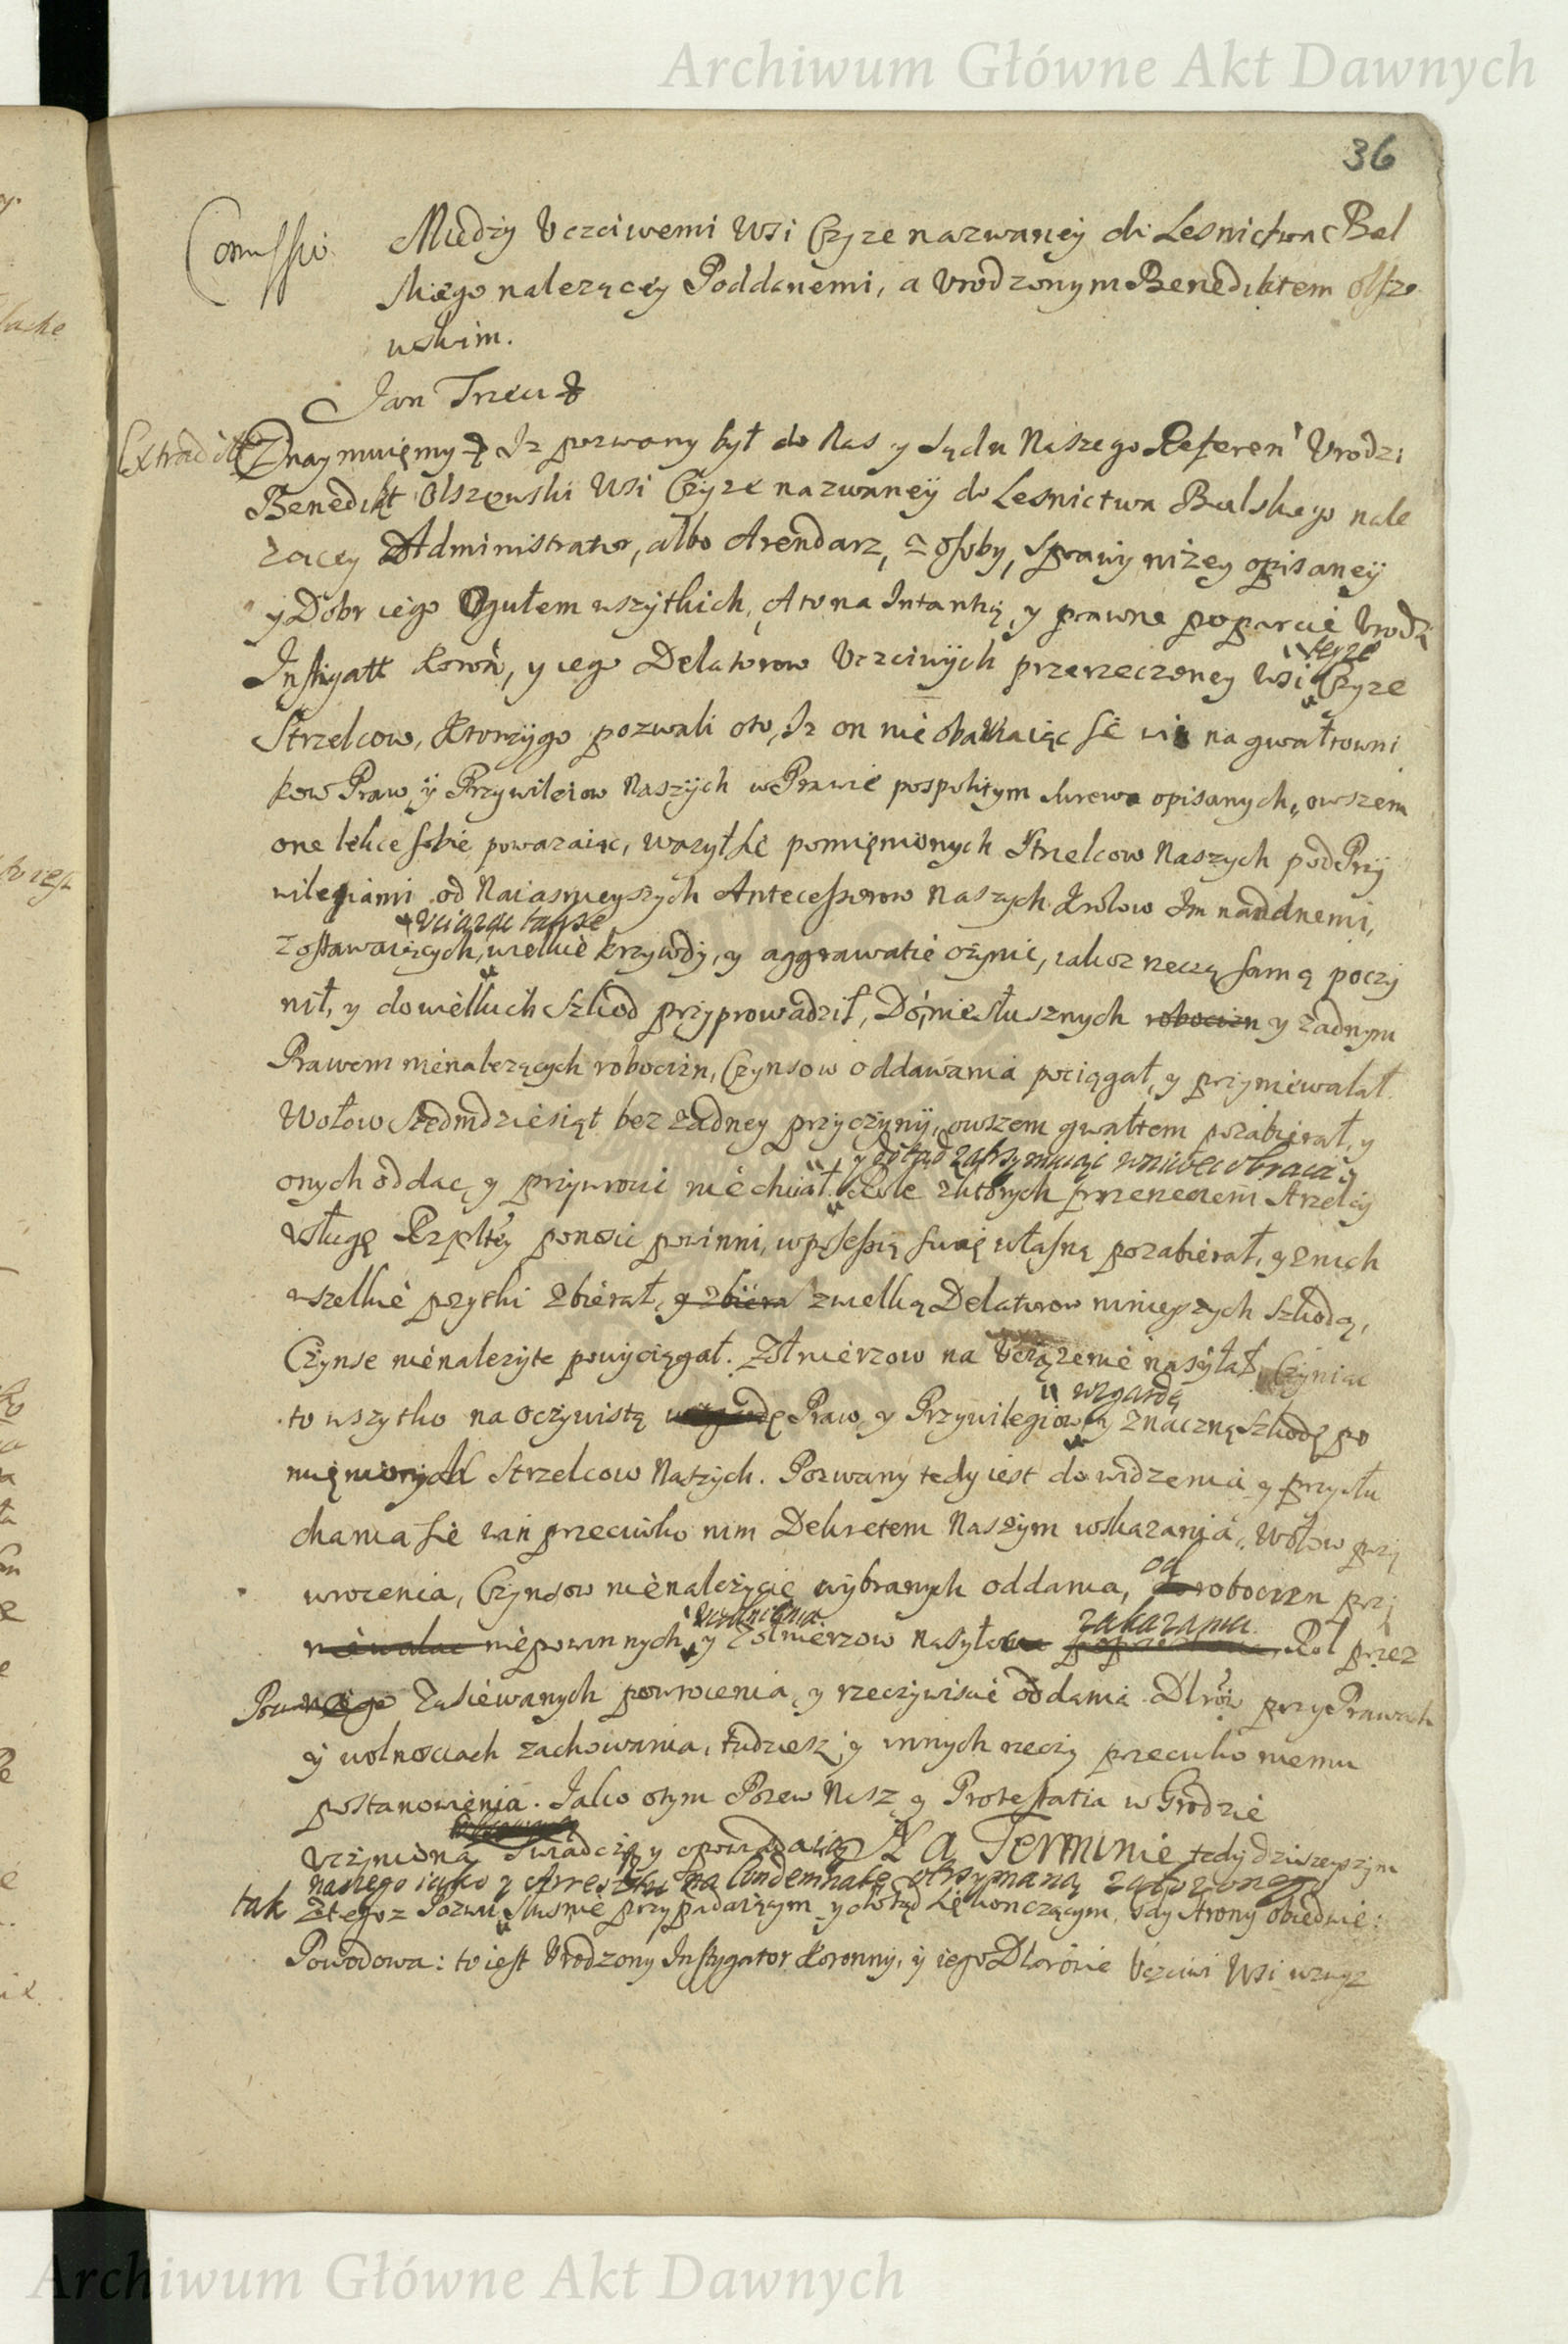 Archiwum Główne Akt Dawnych
36
Comissio
Między Uczciwemi Wsi Czyze nazwaney do Lesnictwa Bel
skiego nalezącey Poddanemi, a Urodzonym Benediktem Olsze
wskim.
Jan Trzeci
Extradit
Oznaymuięmy Iz pozwany był do Nas y Sądu Naszego Referen Urodzi
Benedikt Olszewski Wsi Czyze nazwaneÿ do Lesnictwa Bielskiego nale
zacey Administrator, albo Arendarz, z osoby, sprawy nizey opisaneÿ
y Dobr iego Ogułem wszytkich, A to na Instantią, y prawne poparcie Urodz
Instigatt Koron, y iego Delatorow Uczciwÿch przerzeczoney Wsi Czyze
Strzelcow, Ktorzÿ go pozwali oto, Iz on nie obawiaiąc sie win na gwałtowni
kow Praw ÿ Przywileiow Naszÿch w Prawie pospolitym surowo opisanych, owszem
one lekce sobie powazaiąc, wazył sie pomięnionych Strzelcow Naszych pod Przy
wilegiami od Naiasnieyszych Antecessorow Naszych Krolow Im nadanemi,
uciązac takze
zostawaiących, wielkie krzywdy, y aggrawatie czynic, iakoz rzeczą samą poczy
nił, y do wielkich szkod przyprowadził, Do niesłusznych robocizn y zadnym
Prawem nienalezących robocizn, Czynsow oddawania pociągał, y przyniewalał.
Wołow siedmdziesiąt bez zadney przyczynÿ, owszem gwałtem pozabierał, y
y dotąd zatrzymuiąc wniwec obraca
onych oddac, y przywroci nie chciał. Role z ktorych przerzeczeni Strzelcy
usługę Rzpltey ponosic powinni, w possessią swoię własną pozabierał, y z nich
wszelkie pozytki zbierał, y zbiera z wielką Delatorow ninieyszych szkodą,
Czynse nienalezyte powyciągał. Zołnierzow na Uciązenie nasÿłał, Czyniac
wzgardę
to wszytko na oczywistą Praw y Przywilegiow y znaczną szkodę po
mięnionych Strzelcow Naszÿch. Pozwany tedy iest do widzenia y przysłu
chania sie win przeciwko nim Dekretem Naszym wskazania, Wołow przy
wrocenia, Czynsow nienalezycie wybranych oddania, od robocizn przy
uwolnienia zakazania
niewalac niepowinnych, y Zołnierzow nasyłania Rol przez
Pozwanego Zasiewanych powrocenia, y rzeczywiscie oddania Dlrow przy Prawach
ÿ wolnosciach zachowania, tudziesz y innych rzeczy przeciwko niemu
postanowienia. Jako o tym Pozew Nasz y Protestatia w Grodzie
uczyniona swiadczą y opowiadaią Na Terminie tedy dzisieyszym
naszego iako y Arresztu na Condemnatę otrzymaną załozonego
tak z tegoz Pozwu słusznie przypadaiącym y dotąd się konczącym, gdy strony obiedwie:
Powodowa: to iest Urodzony Instygator Koronny, ÿ iego Dlorowie Uczciwi Wsi wzwyz
Archiwum Główne Akt Dawnych